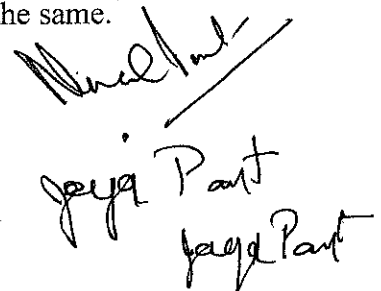 he same.
Jaya Pant
Jaya Pant